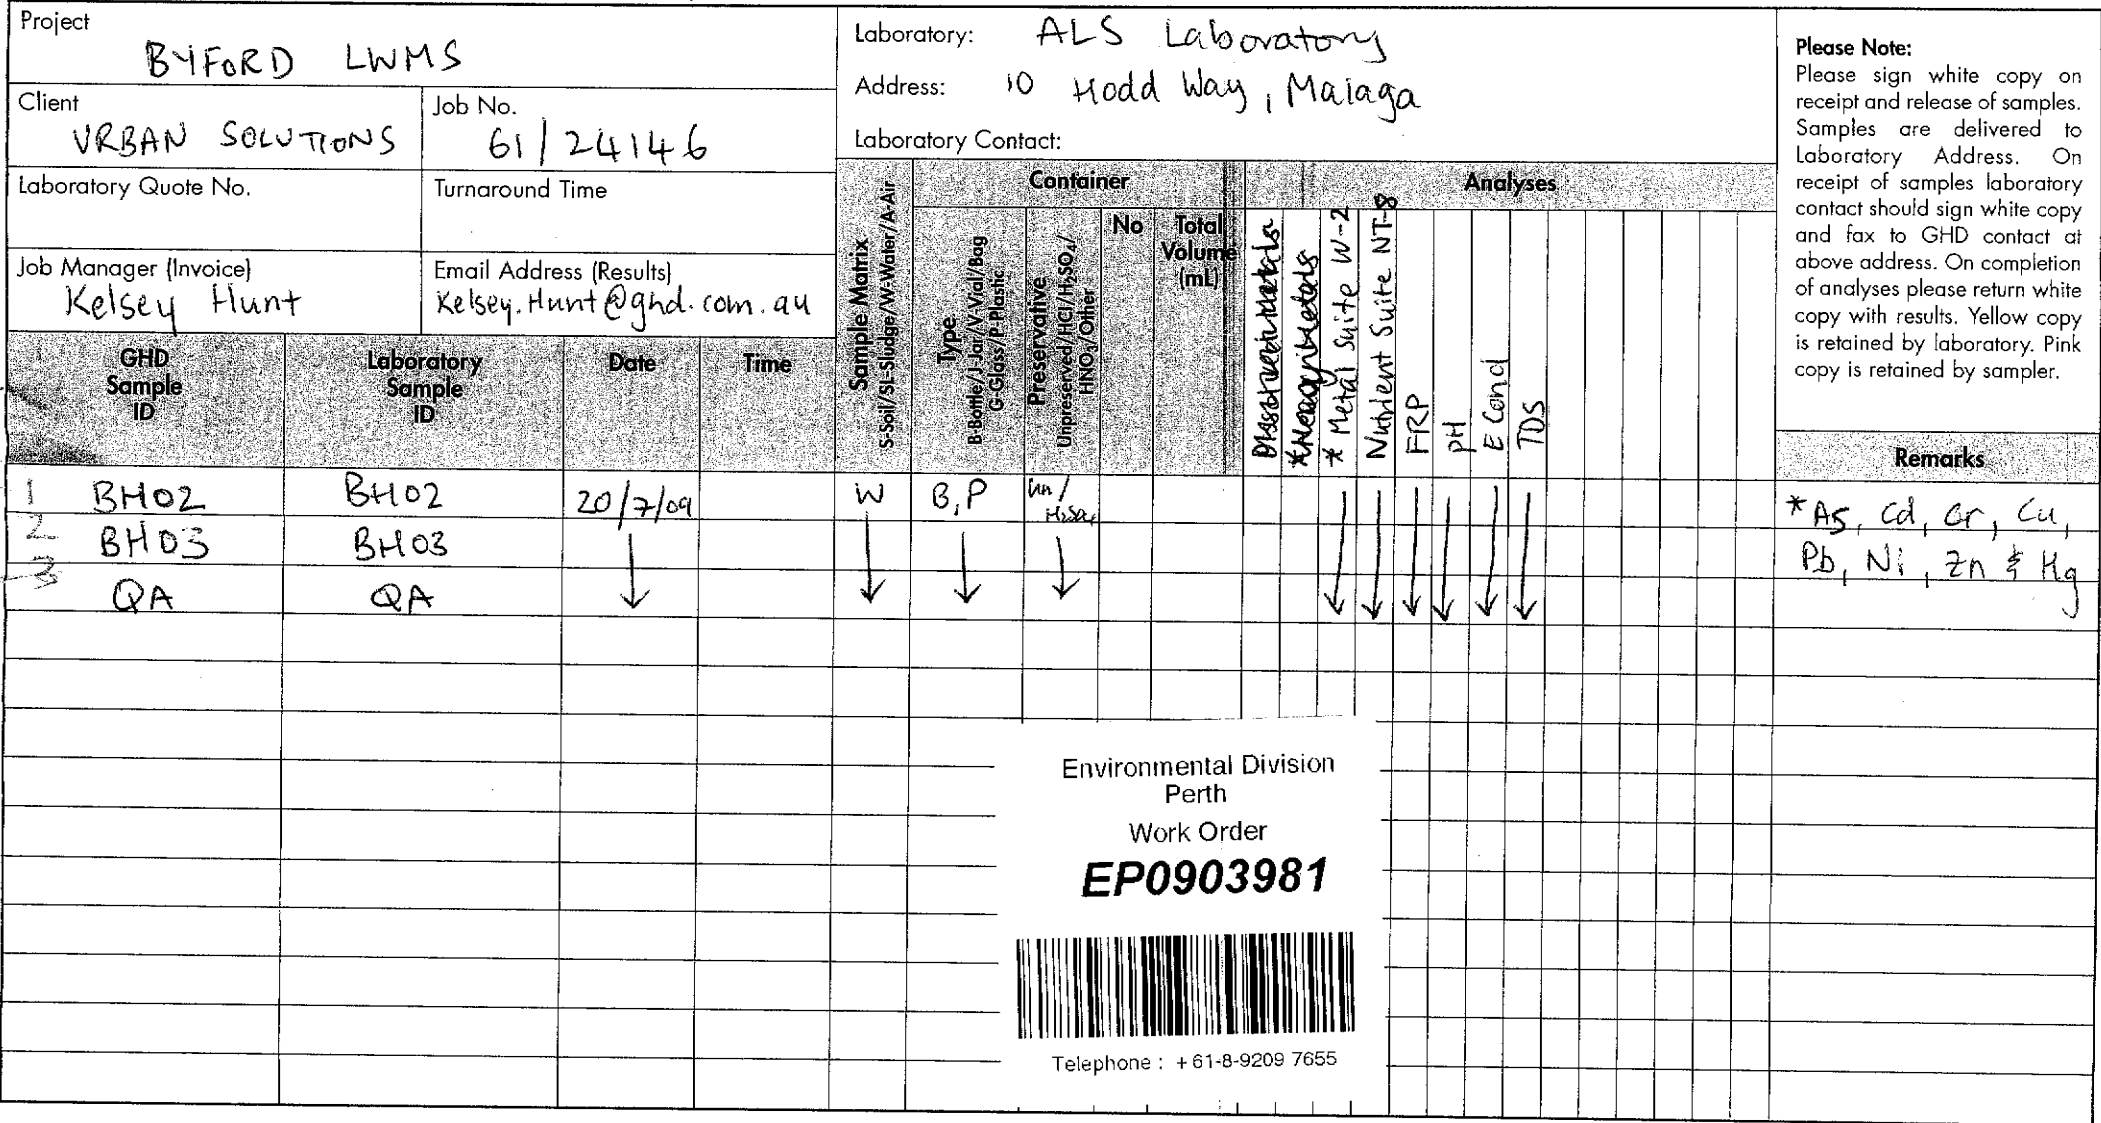 Project
BYFORD LWMS
Client
URBAN SOLUTIONS
Job No.
61/24146
Laboratory Quote No.
Turnaround Time
Job Manager (Invoice)
Kelsey Hunt
Email Address (Results)
Kelsey.Hunt@ghd.com.au
Laboratory: ALS Laboratory
Address: 10 Hodd Way, Malaga
Laboratory Contact:
Please Note:
Please sign white copy on
receipt and release of samples.
Samples are delivered to
Laboratory Address. On
receipt of samples laboratory
contact should sign white copy
and fax to GHD contact at
above address. On completion
of analyses please return white
copy with results. Yellow copy
is retained by laboratory. Pink
copy is retained by sampler.
GHD
Sample
ID
Laboratory
Sample
ID
Date
Time
Sample Matrix
S-Soil/SL-Sludge/W-Water/A-Air
Container
Type
B-Bottle/J-Jar/V-Vial/Bag
G-Glass/P-Plastic
Preservative
Unpreserved/HCl/H₂SO₄/
HNO₃/Other
No
Total
Volume
(mL)
Analyses
* Metal Suite W-2
Nutrient Suite NT-8
FRP
pH
E Cond
TDS
Remarks
1 BH02 BH02 20/7/09 W B,P un/H₂SO₄
2 BH03 BH03
3 QA QA
* As, Cd, Cr, Cu,
Pb, Ni, Zn & Hg
Environmental Division
Perth
Work Order
EP0903981
Telephone : +61-8-9209 7655